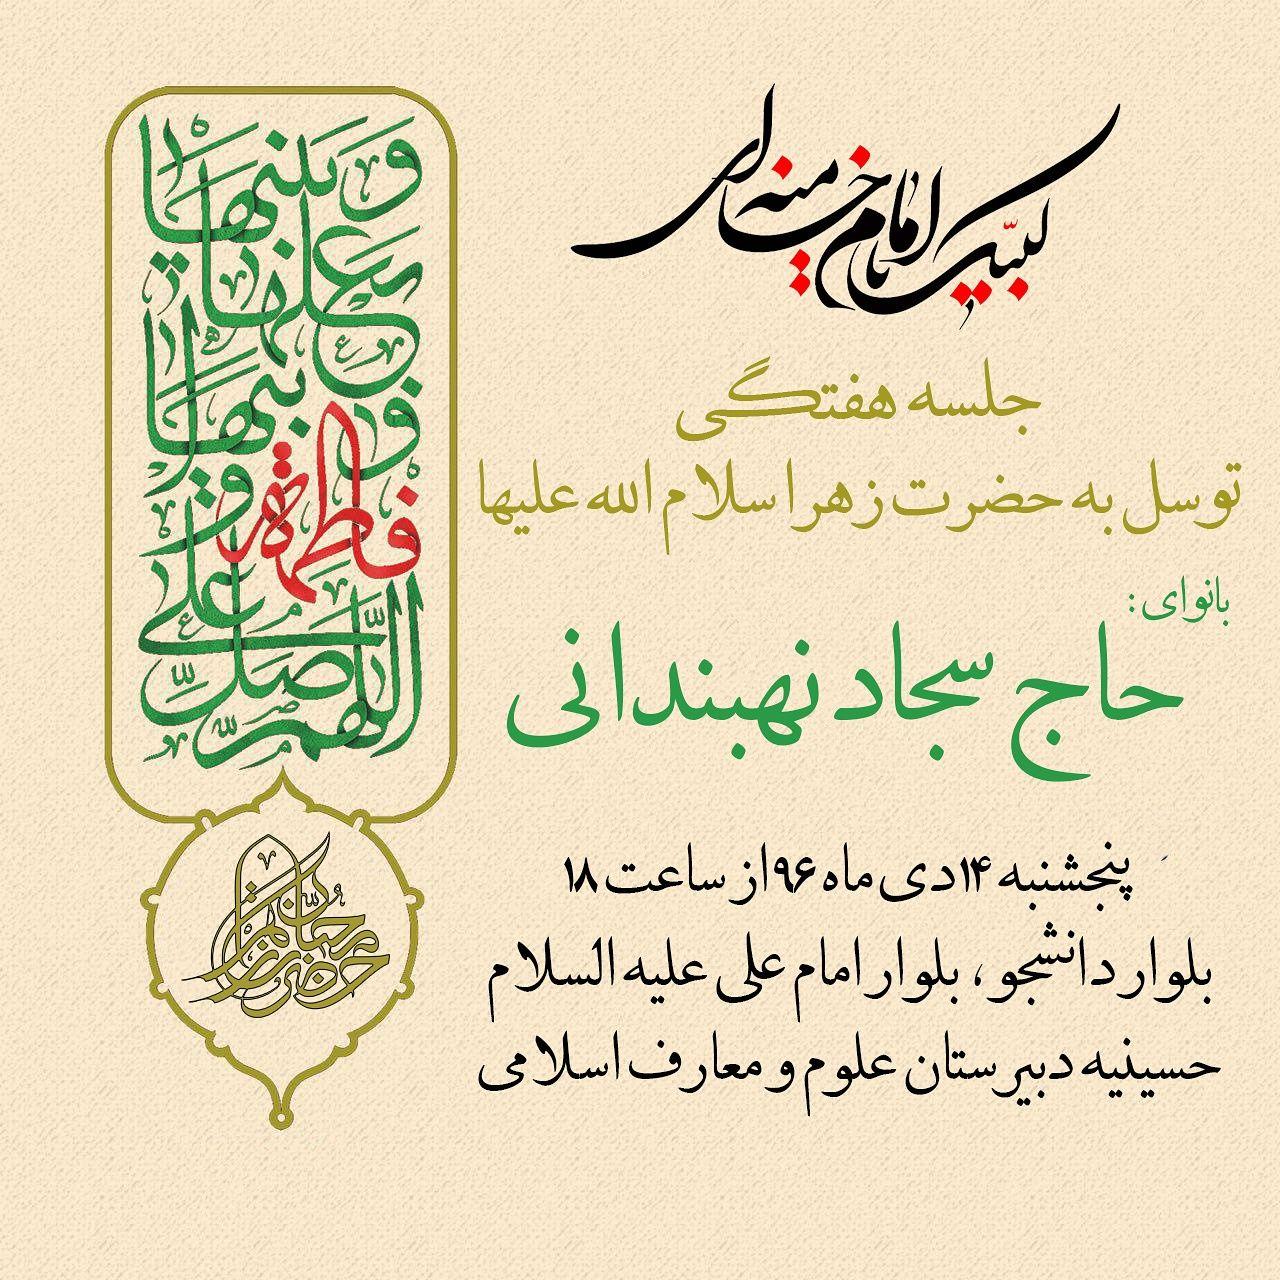 لبیک یا امام خامنه ای
جلسه هفتگی
توسل به حضرت زهرا سلام الله علیها
بانوای:
حاج سجاد نهبندانی
پنجشنبه ۱۴ دی ماه ۹۶ از ساعت ۱۸
بلوار دانشجو، بلوار امام علی علیه السلام
حسینیه دبیرستان علوم و معارف اسلامی
اللهم صل علی
فاطمة و
ابیها و
بعلها و
بنیها